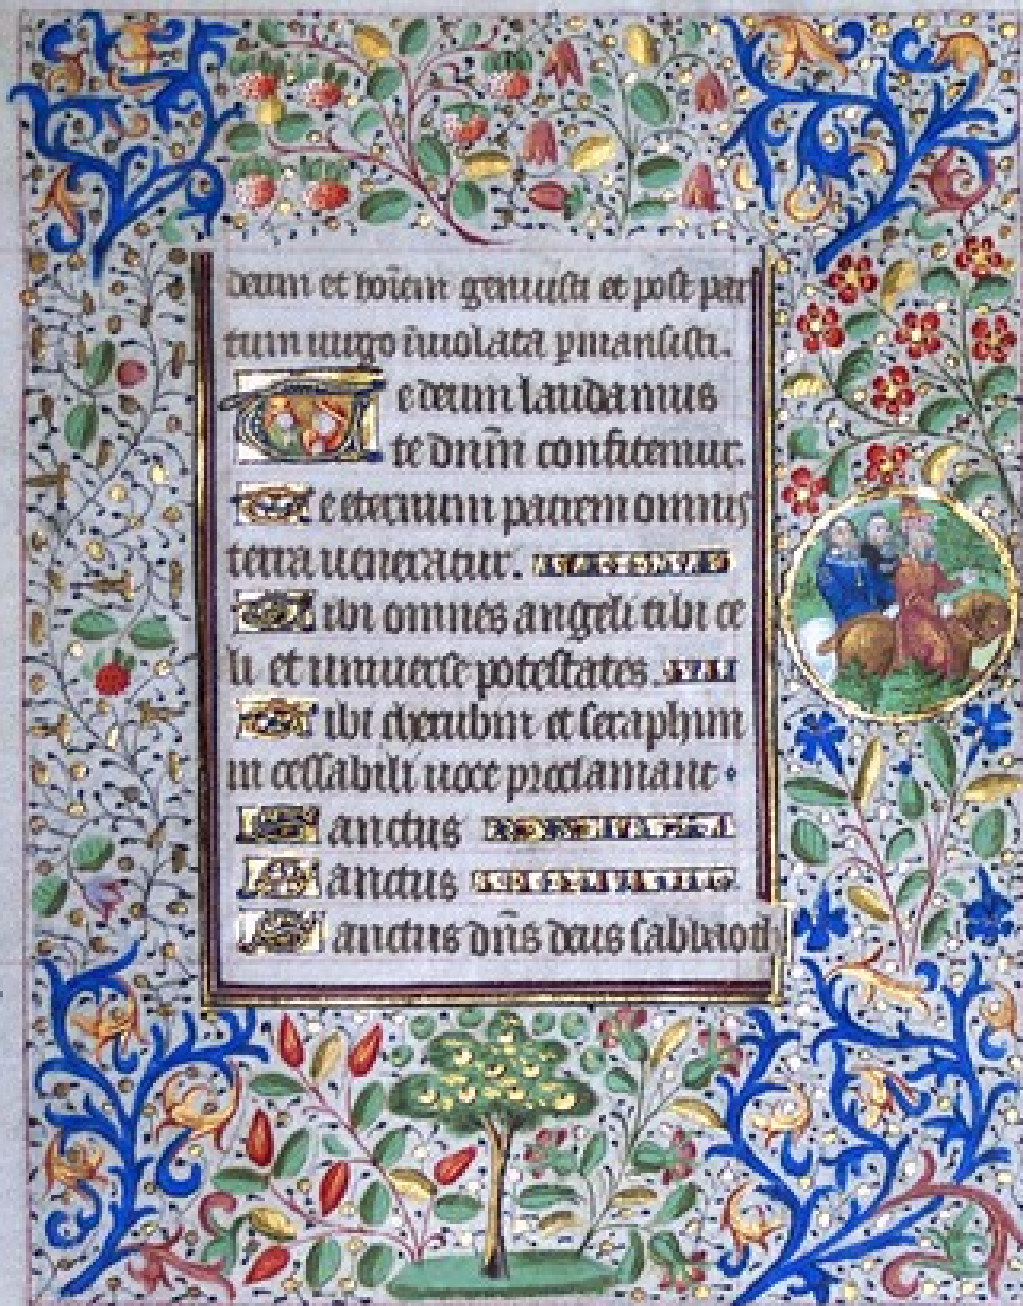 deum et hoīem genuisti et post par
tum uirgo īuiolata ꝑmansisti.
Te deum laudamus
te dn̄m confitemur.
Te eternum patrem omnis
terra ueneratur.
Tibi omnes angeli tibi ce
li et uniuerse potestates.
Tibi cherubin et seraphim
in cessabili uoce proclamant.
Sanctus
Sanctus
Sanctus dn̄s deus sabbaoth